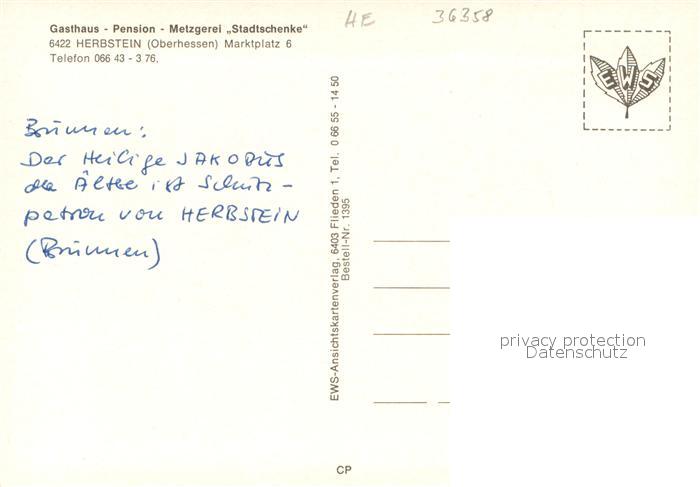 Gasthaus - Pension - Metzgerei „Stadtschenke"
6422 HERBSTEIN (Oberhessen) Marktplatz 6
Telefon 066 43 - 3 76.
HE 36358
EWS
Brunnen:
Der Heilige JAKOBUS
der Ältere ist Schutz-
patron von HERBSTEIN
(Brunnen)
EWS-Ansichtskartenverlag, 6403 Flieden 1, Tel. 0 66 55 - 14 50
Bestell-Nr. 1395
privacy protection
Datenschutz
CP